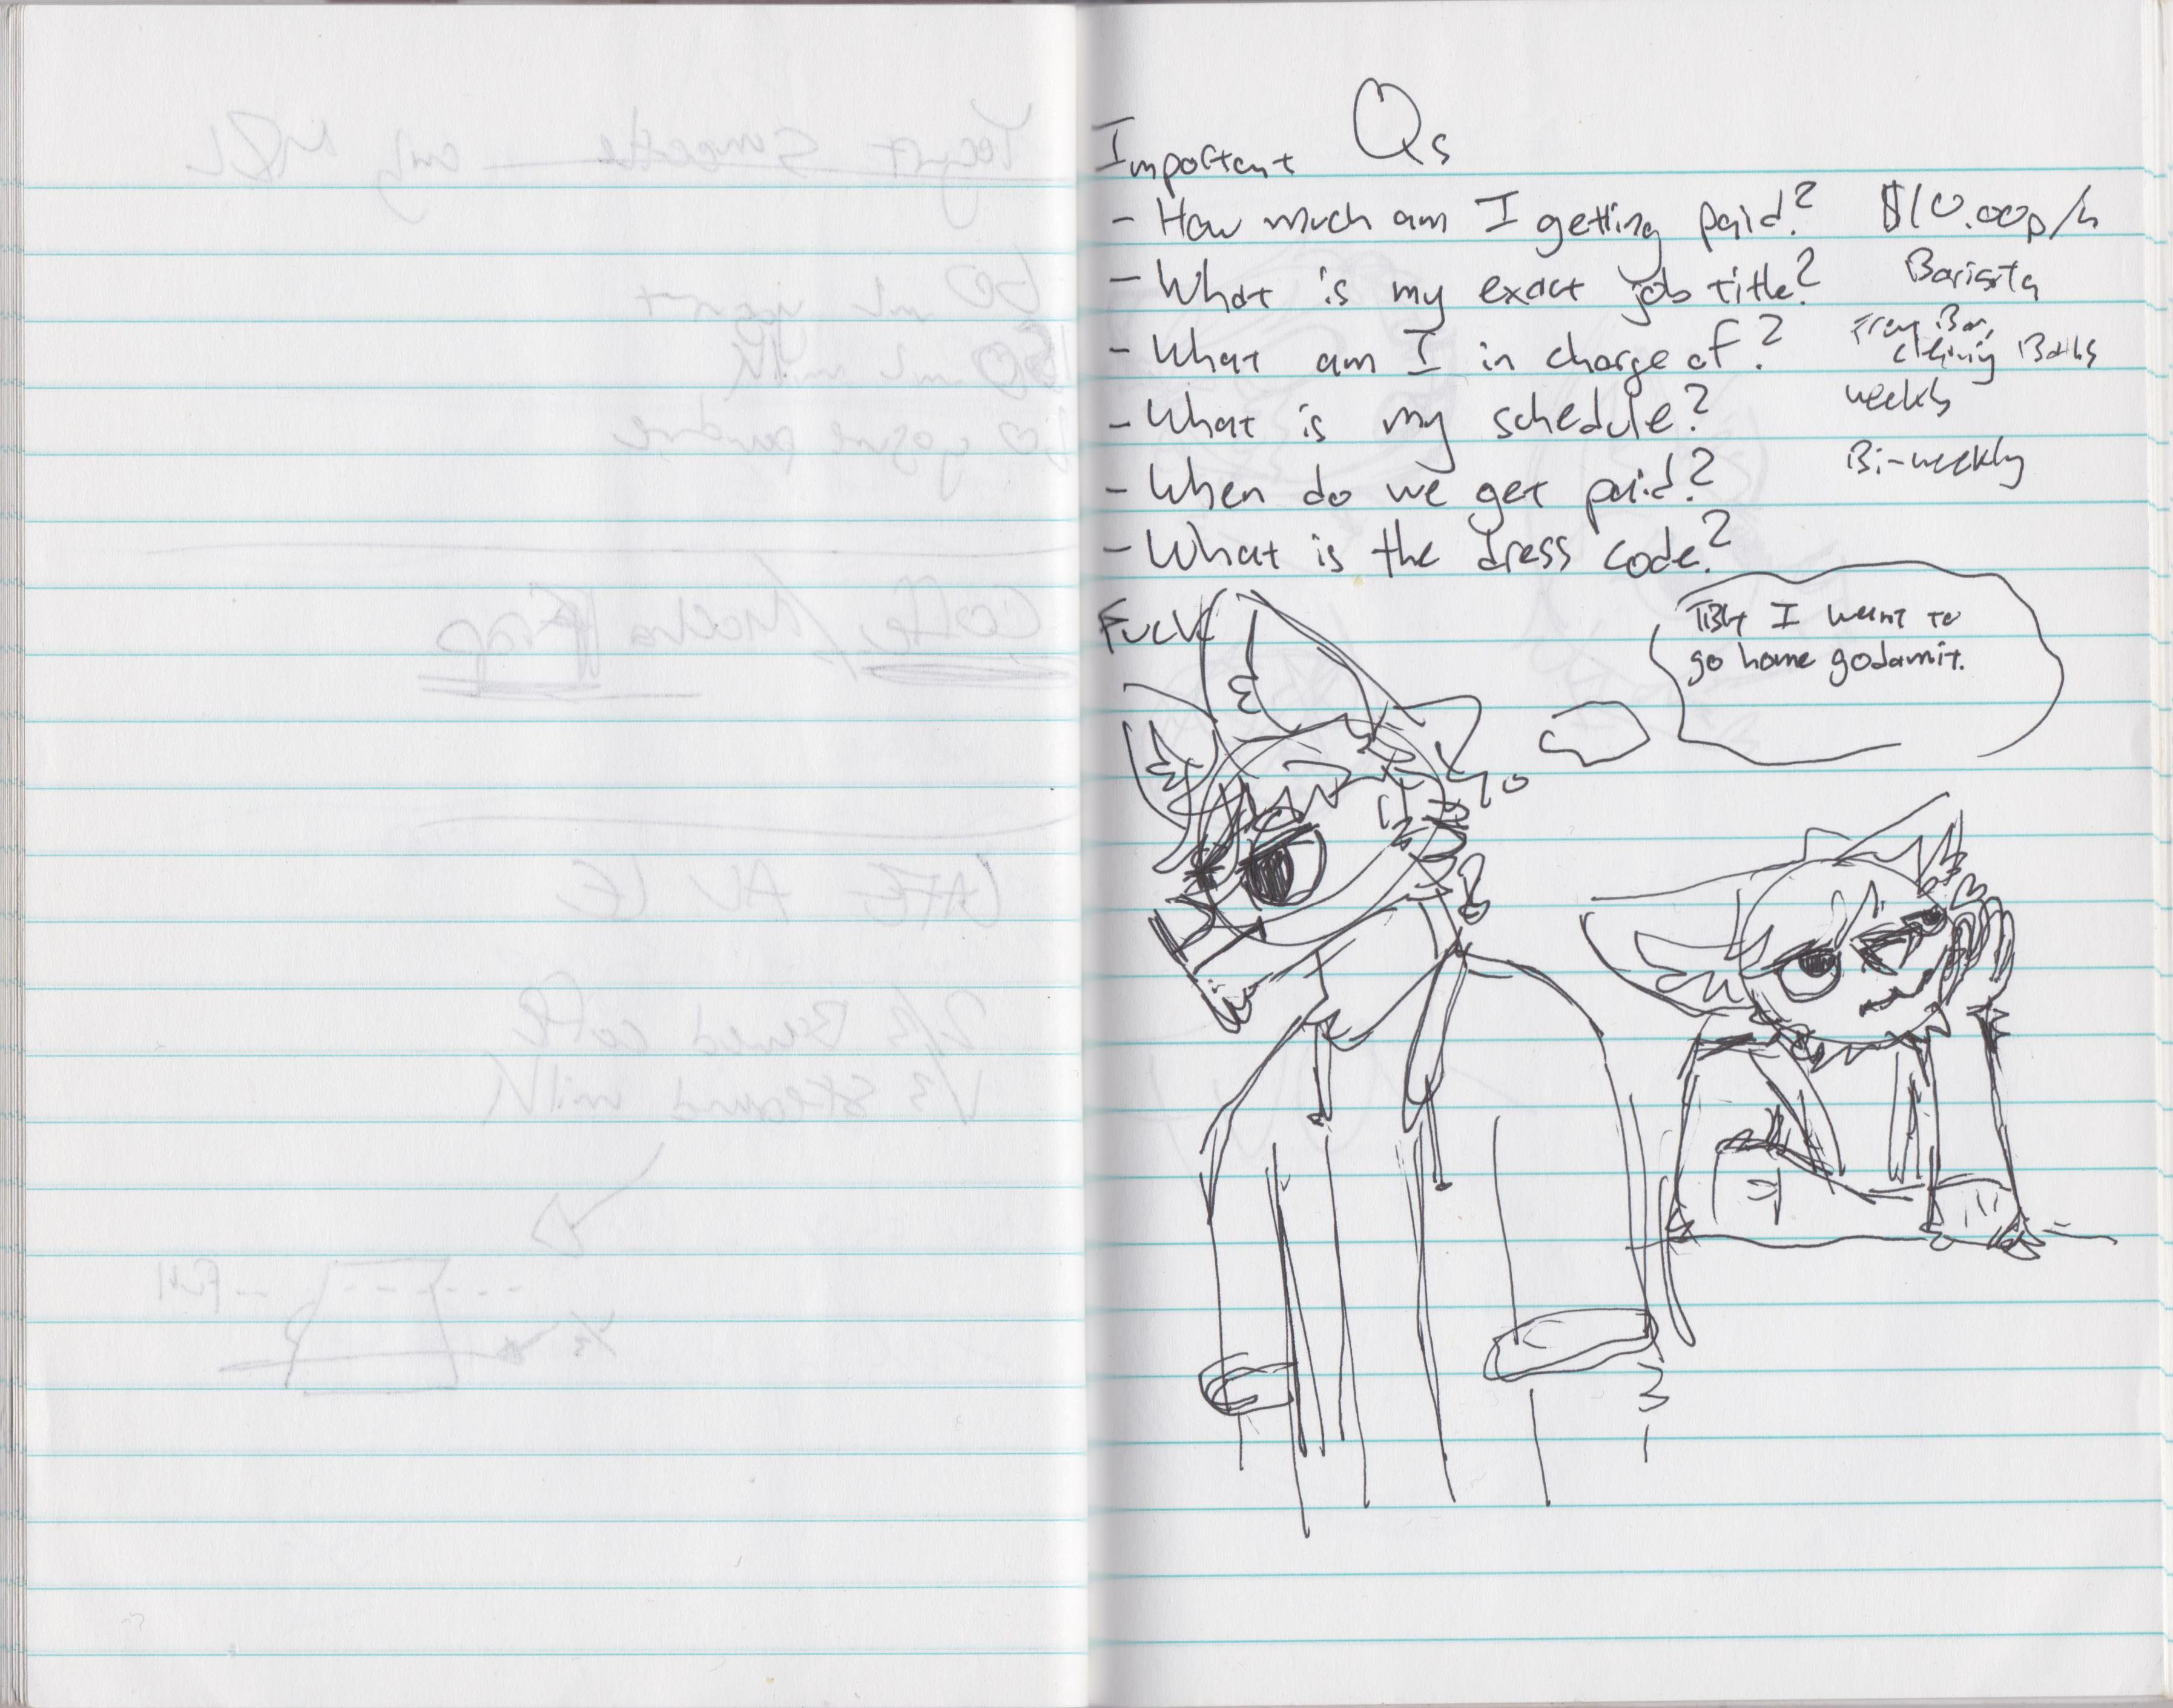 Important Qs
- How much am I getting paid? $10.00p/h
- What is my exact job title? Barista
- What am I in charge of? Bar,
- What is my schedule? weekly
- When do we get paid? Bi-weekly
- What is the dress code?
FUCK
TBH I want to
go home godamit.